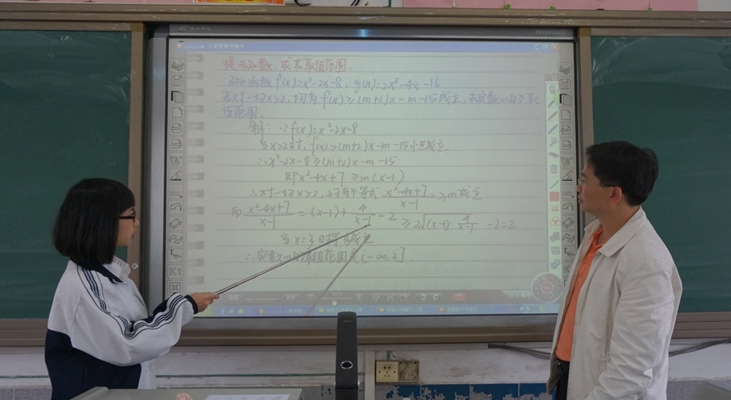 提示函数,求其取值范围.
已知函数f(x)=x²-2x-8, g(x)=2x²-4x-16
若对一切x>2,均有f(x)≥(m+2)x-m-15成立,求实数m的取
值范围.
解:∵f(x)=x²-2x-8
当x>2时,f(x)≥(m+2)x-m-15恒成立
∴x²-2x-8≥(m+2)x-m-15
即x²-4x+7≥m(x-1)
∴对一切x>2,均有不等式 (x²-4x+7)/(x-1) ≥m成立
而 (x²-4x+7)/(x-1) =(x-1)+ 4/(x-1) -2 ≥2√((x-1)· 4/(x-1)) -2=2
当x=3时等号成立
∴实数m的取值范围是(-∞,2].